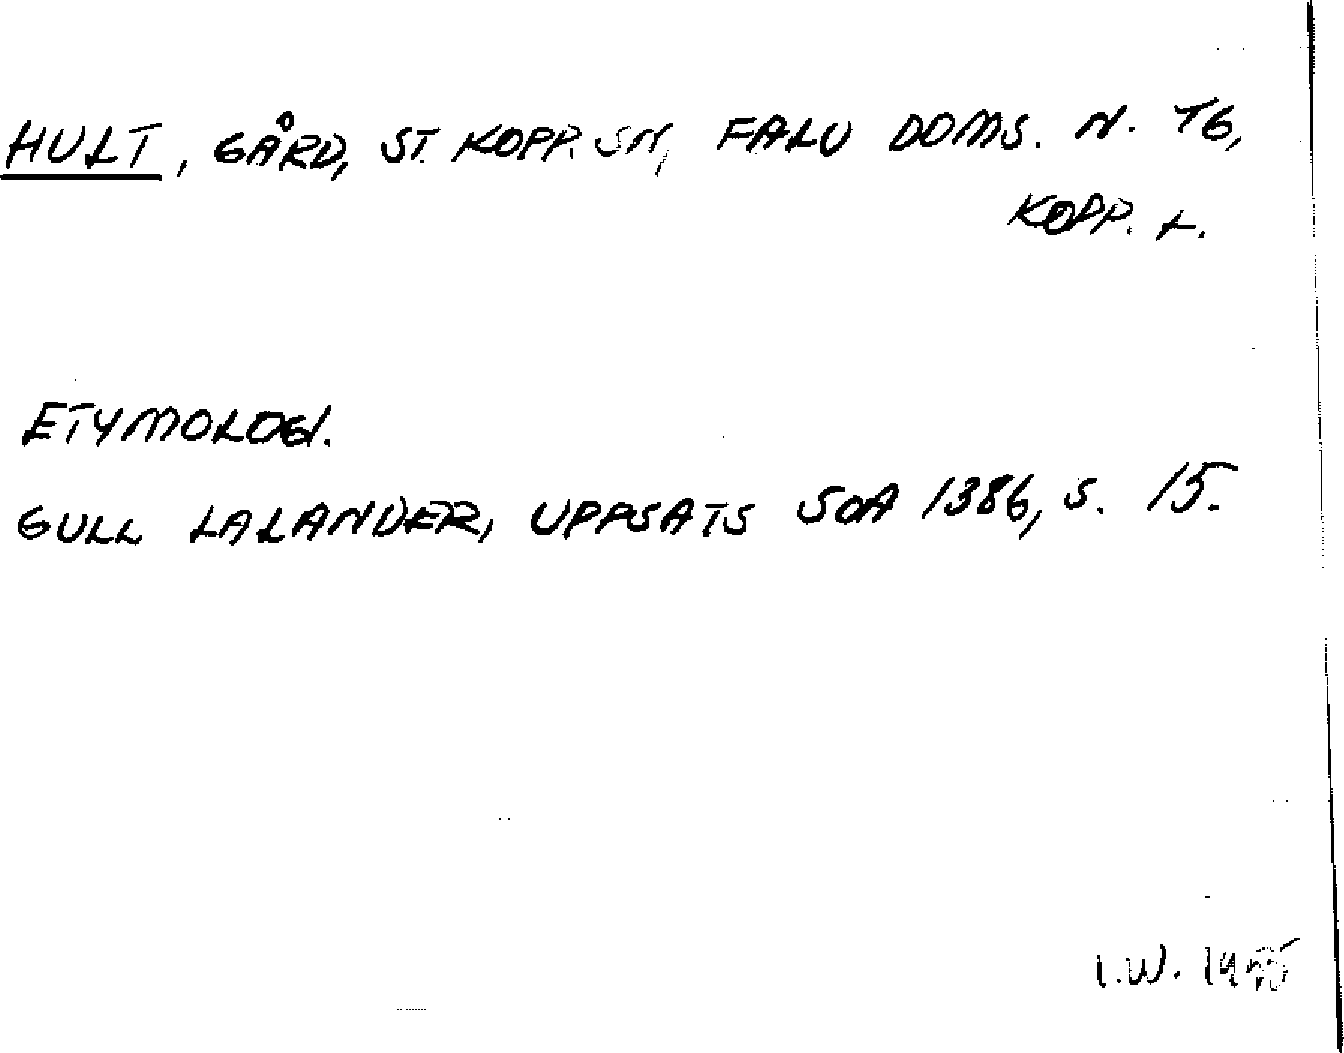 HULT, GÅRD, ST. KOPP. SN, FALU DOMS. N. TG,
KOPP. L.
ETYMOLOGI.
GULL LALANDER, UPPSATS SOA 1386, S. 15.
I.W.